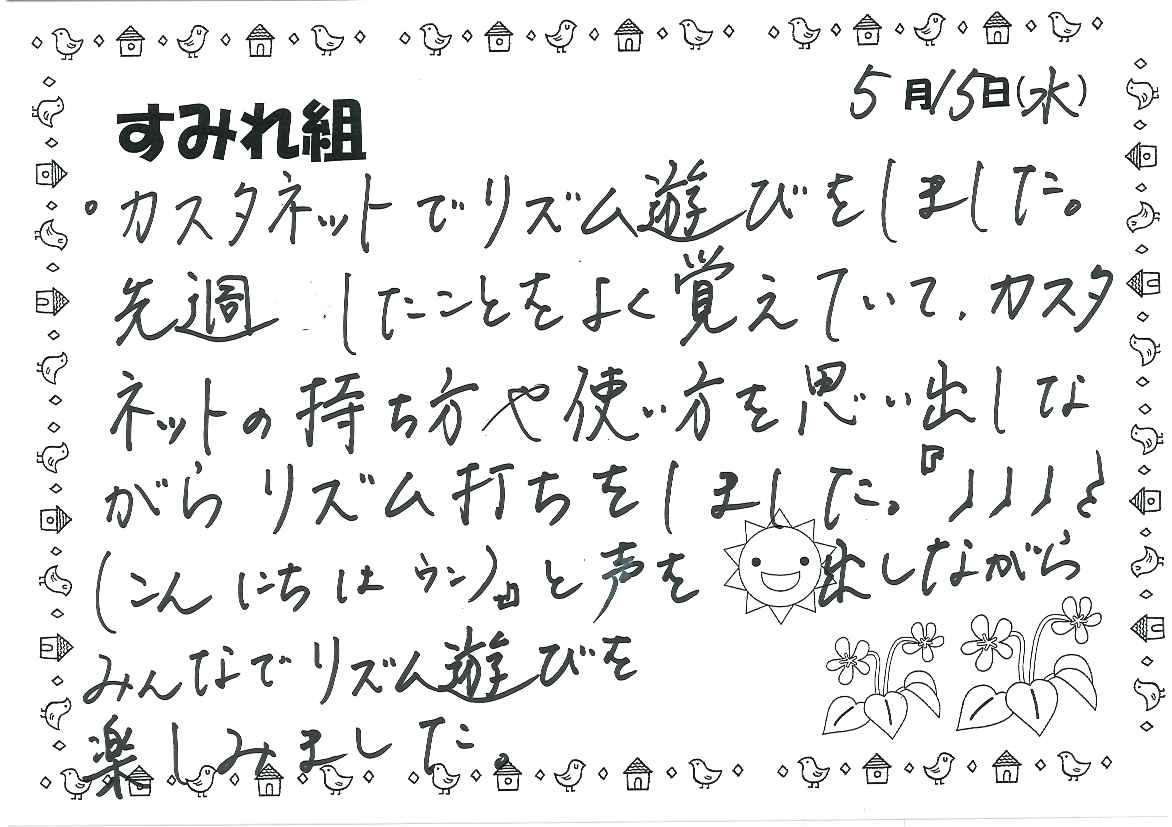 5月15日(水)
すみれ組
。カスタネットでリズム遊びをしました。
先週 したことをよく覚えていて、カスタ
ネットの持ち方や使い方を思い出しな
がらリズム打ちをしました。『♩♩♩𝄽
(こんにちは ウン)』と声を出しながら
みんなでリズム遊びを
楽しみました。